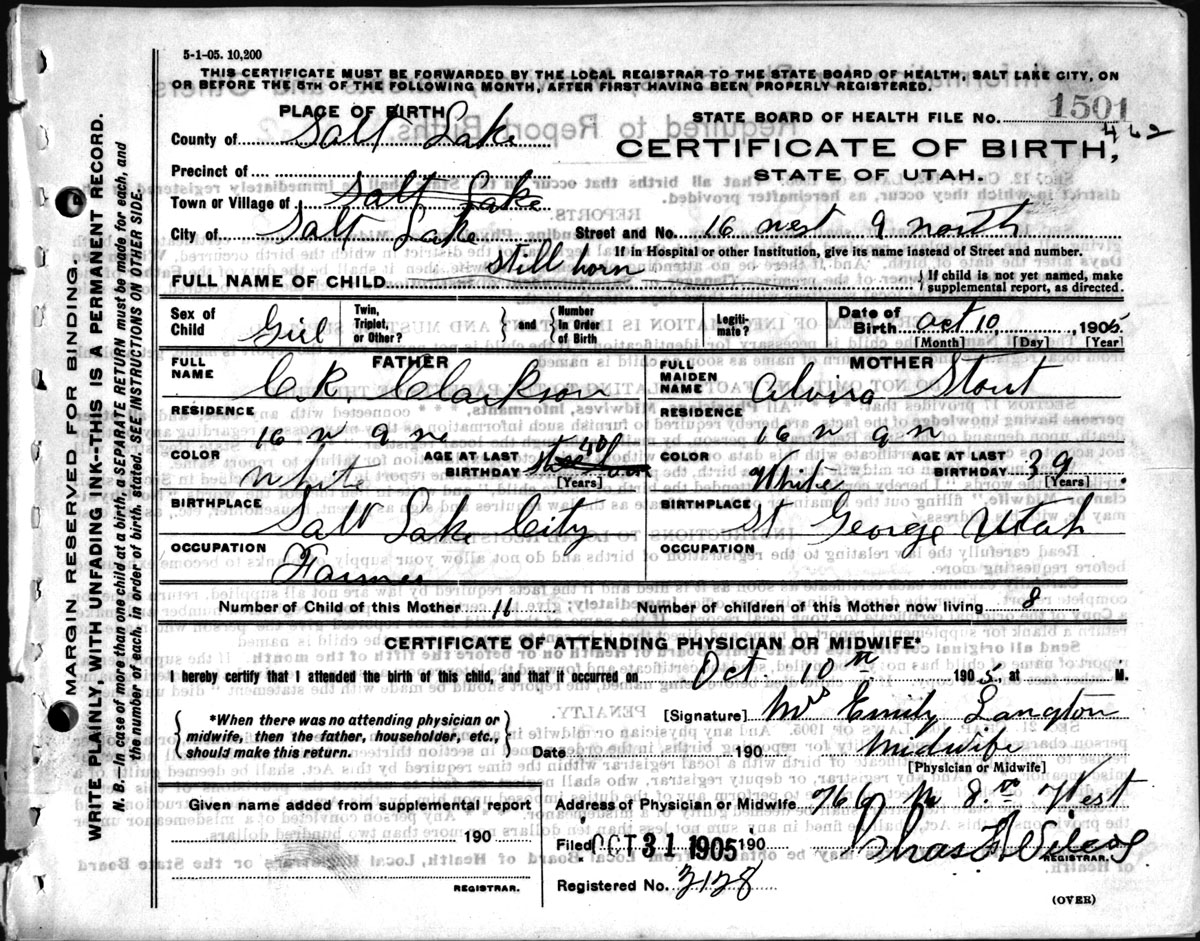 5-1-05. 10,200
THIS CERTIFICATE MUST BE FORWARDED BY THE LOCAL REGISTRAR TO THE STATE BOARD OF HEALTH, SALT LAKE CITY, ON
OR BEFORE THE 5TH OF THE FOLLOWING MONTH, AFTER FIRST HAVING BEEN PROPERLY REGISTERED.
PLACE OF BIRTH
STATE BOARD OF HEALTH FILE NO. 1501
462
County of Salt Lake
CERTIFICATE OF BIRTH,
STATE OF UTAH.
Precinct of
Town or Village of Salt Lake
City of Salt Lake Street and No. 16 west 9 north
If in Hospital or other Institution, give its name instead of Street and number.
FULL NAME OF CHILD Still born
If child is not yet named, make
supplemental report, as directed.
Sex of Child Girl
Twin, Triplet, or Other?
and
Number In Order of Birth
Legitimate?
Date of Birth Oct 10, 1905
[Month] [Day] [Year]
FATHER
FULL NAME C. R. Clarkson
RESIDENCE
16 W 9 N
COLOR White
AGE AT LAST BIRTHDAY 40
[Years]
BIRTHPLACE
Salt Lake City
OCCUPATION
Farmer
MOTHER
FULL MAIDEN NAME Alvira Stout
RESIDENCE
16 W 9 N
COLOR White
AGE AT LAST BIRTHDAY 39
[Years]
BIRTHPLACE
St George Utah
OCCUPATION
Number of Child of this Mother 11
Number of children of this Mother now living 8
CERTIFICATE OF ATTENDING PHYSICIAN OR MIDWIFE*
I hereby certify that I attended the birth of this child, and that it occurred on Oct. 10th 1905, at M.
*When there was no attending physician or
midwife, then the father, householder, etc.,
should make this return.
[Signature] Mrs Emily Langton
Date 190 Midwife
[Physician or Midwife]
Given name added from supplemental report
190
REGISTRAR.
Address of Physician or Midwife 766 N 8th West
Filed OCT 31 1905 190
REGISTRAR.
Registered No. 2128
(OVER)
MARGIN RESERVED FOR BINDING.
WRITE PLAINLY WITH UNFADING INK--THIS IS A PERMANENT RECORD.
N. B.—In case of more than one child at a birth, a SEPARATE RETURN must be made for each, and
the number of each, in order of birth, stated. SEE INSTRUCTIONS ON OTHER SIDE.